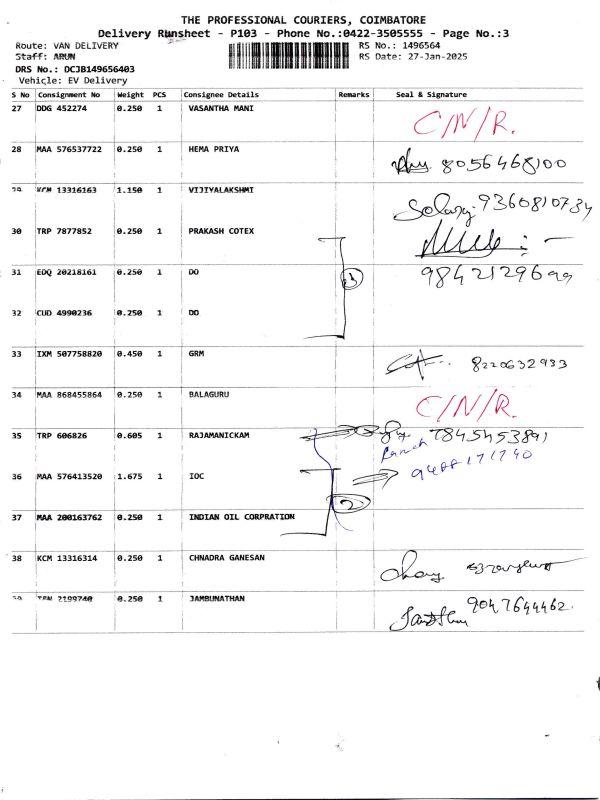 THE PROFESSIONAL COURIERS, COIMBATORE
Delivery Runsheet - P103 - Phone No.:0422-3505555 - Page No.:3
Route: VAN DELIVERY RS No.: 1496564
Staff: ARUN RS Date: 27-Jan-2025
DRS No.: DCJB149656403
Vehicle: EV Delivery
S No Consignment No Weight PCS Consignee Details Remarks Seal & Signature
27 DDG 452274 0.250 1 VASANTHA MANI C/N/R.
28 MAA 576537722 0.250 1 HEMA PRIYA 8056468100
29 KCM 13316163 1.150 1 VIJIYALAKSHMI 9360810734
30 TRP 7877852 0.250 1 PRAKASH COTEX
31 EDQ 20218161 0.250 1 DO 3 9842129699
32 CUD 4990236 0.250 1 DO
33 IXM 507758820 0.450 1 GRM 8220632933
34 MAA 868455864 0.250 1 BALAGURU C/N/R.
35 TRP 606826 0.605 1 RAJAMANICKAM 7845453891
36 MAA 576413520 1.675 1 IOC 9488171740
2
37 MAA 200163762 0.250 1 INDIAN OIL CORPRATION
38 KCM 13316314 0.250 1 CHNADRA GANESAN
39 TEN 2199740 0.250 1 JAMBUNATHAN 9047644462.